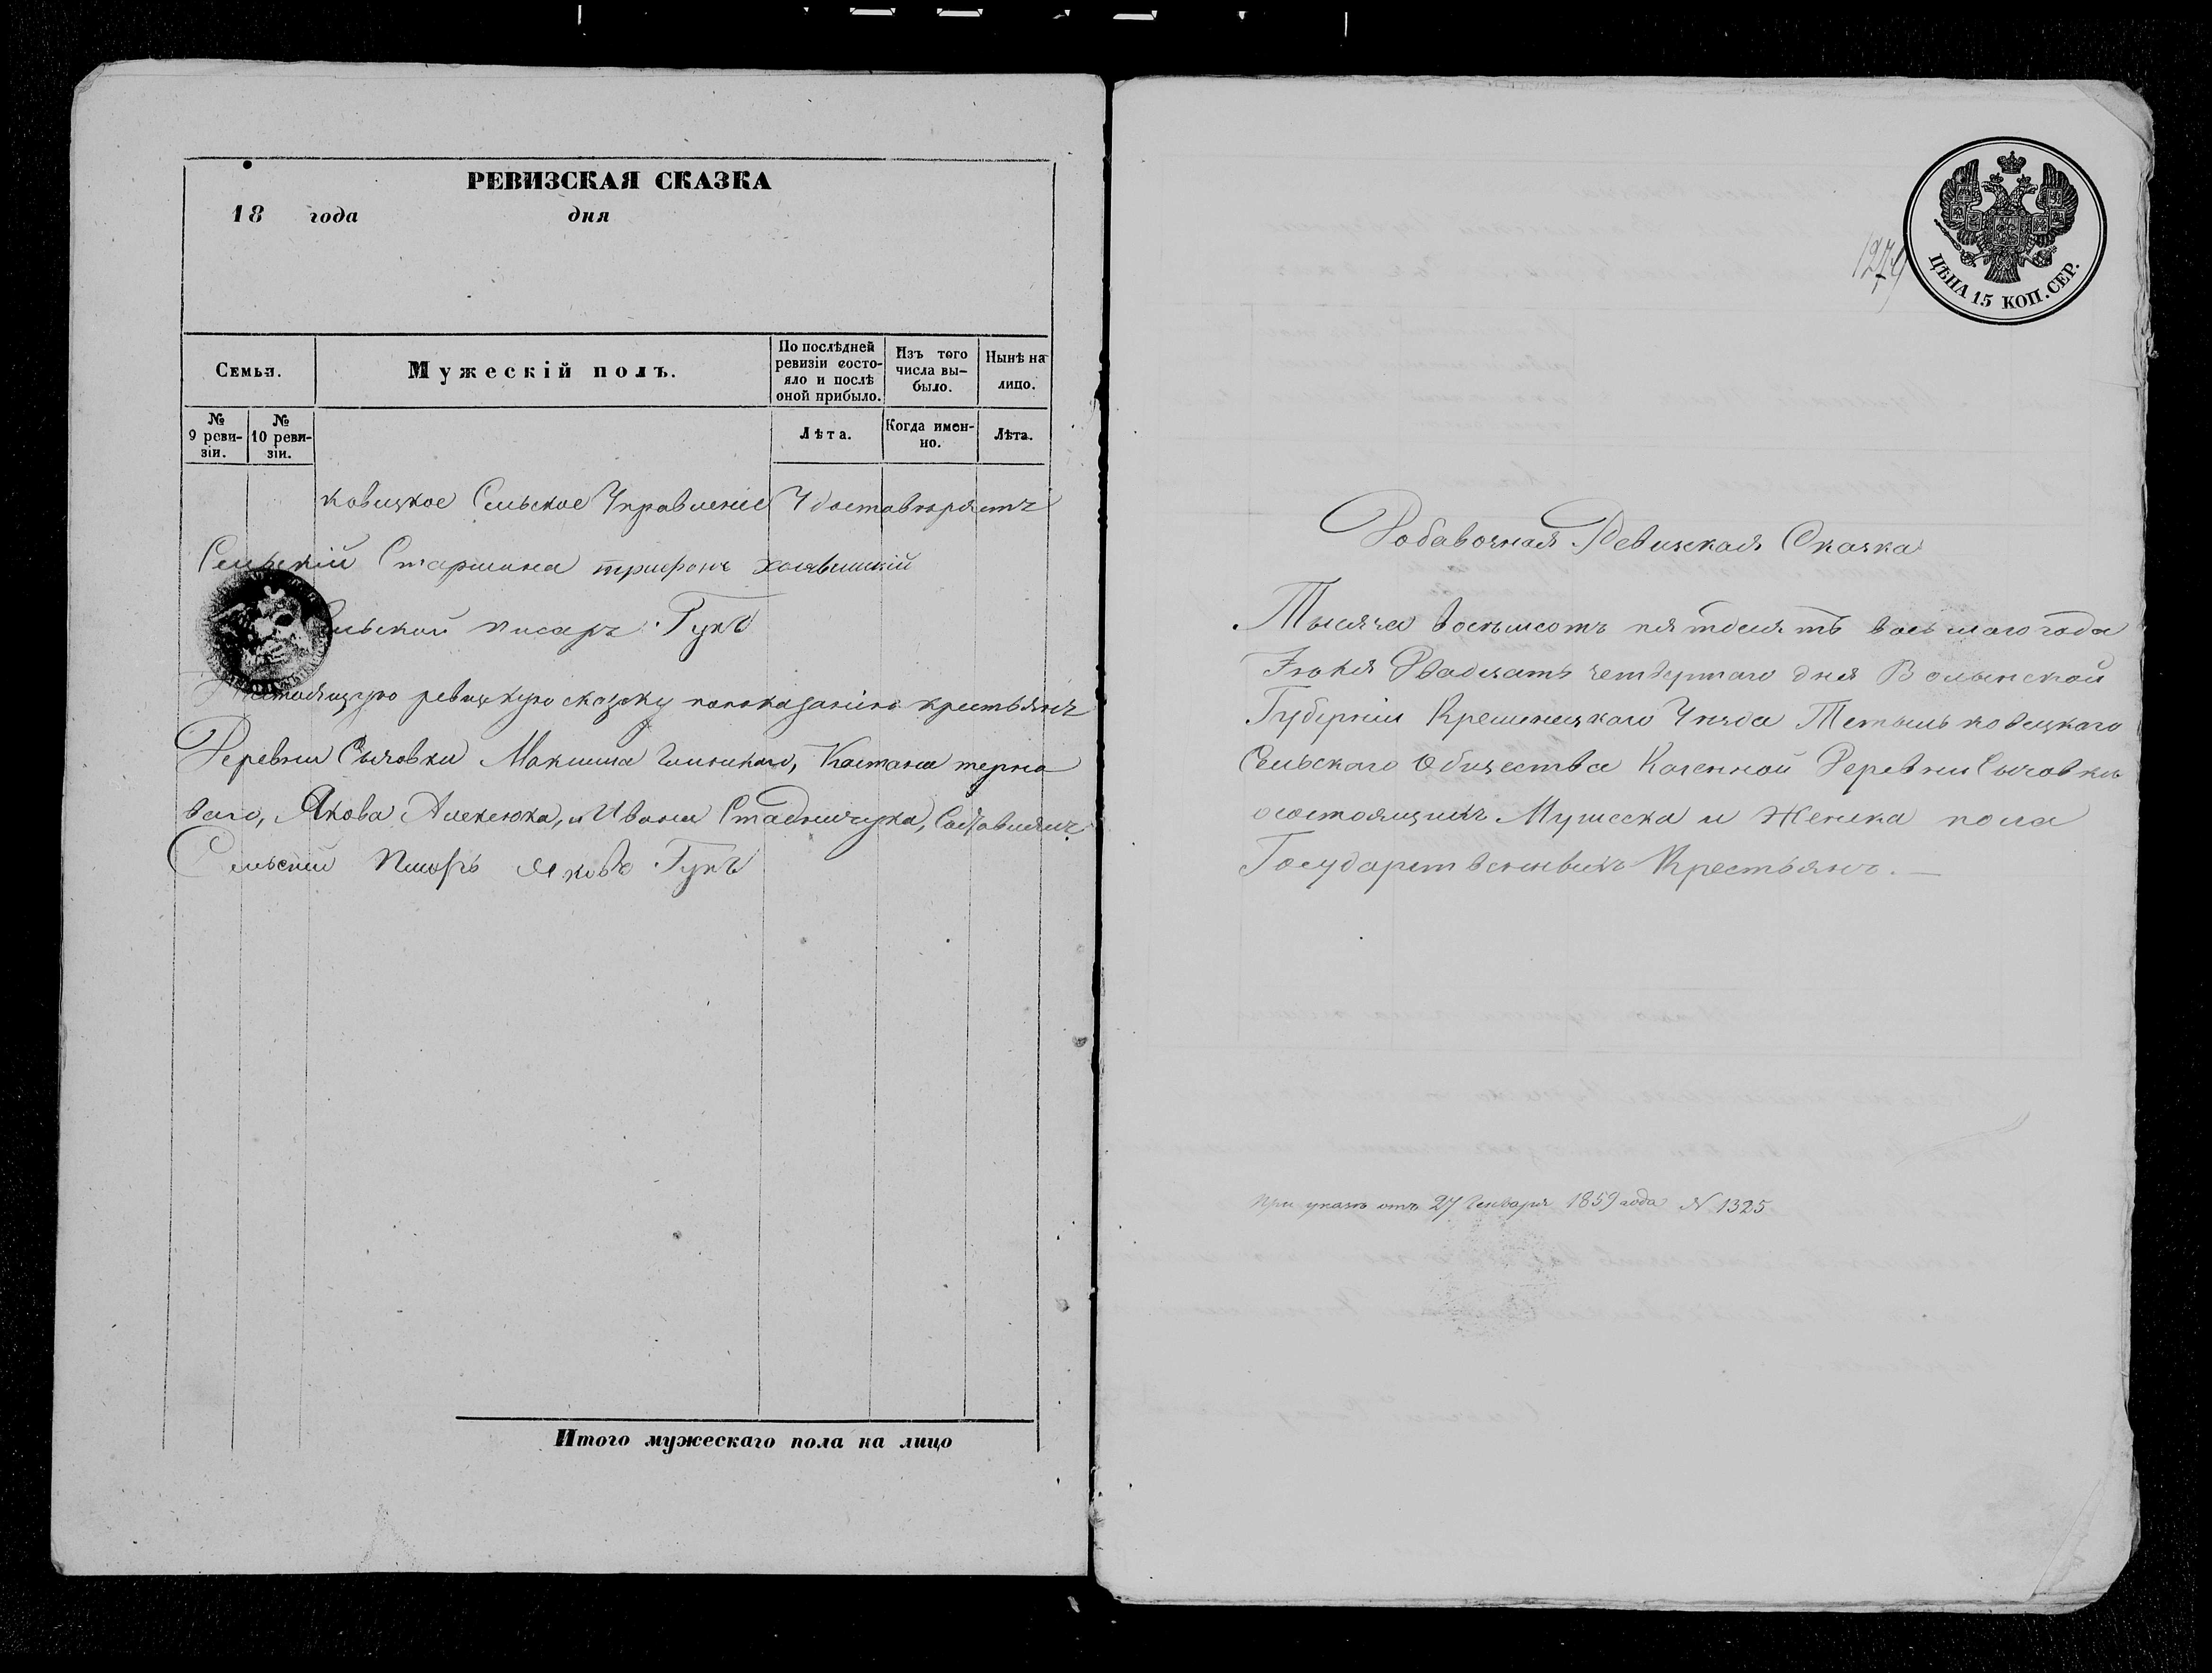 РЕВИЗСКАЯ СКАЗКА
18 года дня
Семья.
Мужескій полъ.
По послѣдней ревизіи состо-
яло и послѣ
оной прибыло.
Изъ того
числа вы-
было.
Нынѣ на
лицо.
№
9 реви-
зіи.
№
10 реви-
зіи.
Лѣта.
Когда имен-
но.
Лѣта.
ковецкое Сельское Управленіе Удостовѣряетъ
Сельскій Старшина трифонъ
писарь Гукъ
ревизкую сказку попоказанію крестьянъ
Деревни Сычовки Максима
ваго, Якова Алексюка, и Ивана Стадничука, Составлялъ
Сельский Писарь Яковъ Гукъ
Итого мужескаго пола на лицо
ЦѢНА 15 КОП. СЕР.
Добавочная Ревизская Сказка
Тысяча восемьсотъ пятдесятъ восьмаго года
Іюня Двадцать четвертаго дня Волынской
Губерніи Кременецкаго Уѣзда Тетильковецкаго
Сельскаго Общества Казенной Деревни Сычовки
осостоящихъ Мужеска и Женска пола
Государственныхъ Крестьянъ.—
При указѣ отъ 27 Генваря 1859 года N 1325